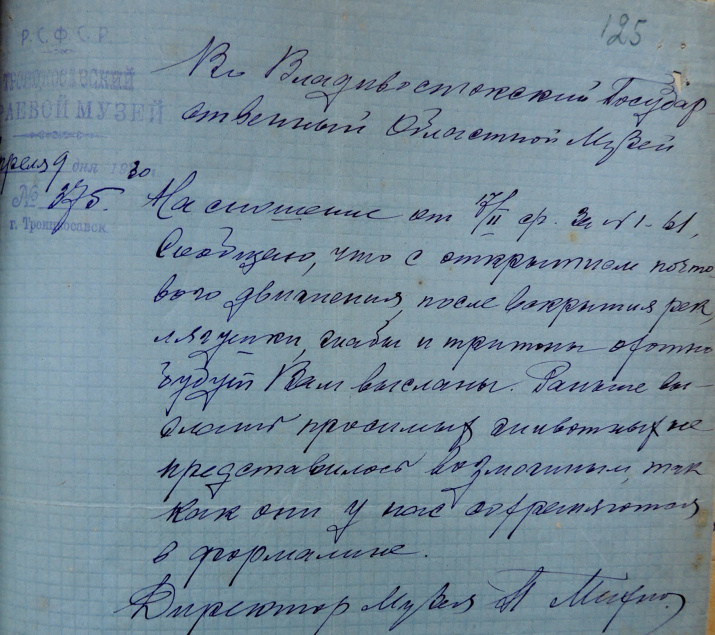 125
Р.С.Ф.С.Р.
ТРОИЦКОСАВСКИЙ
КРАЕВОЙ МУЗЕЙ
преля 9 дня 1930
№ 376.
г. Троицкосавск
Во Владивостокский Государ-
ственный Областной Музей
На сношение от 17/II с/г. За №1-61,
Сообщаю, что с открытием почто
вого движения, после вскрытия рек,
лягушки, жабы и тритоны
будут Вам высланы. Раньше вы-
слать просимых животных не
представилось возможным, так
как они у нас сохраняются
в формалине.
Директор Музея П Михно.